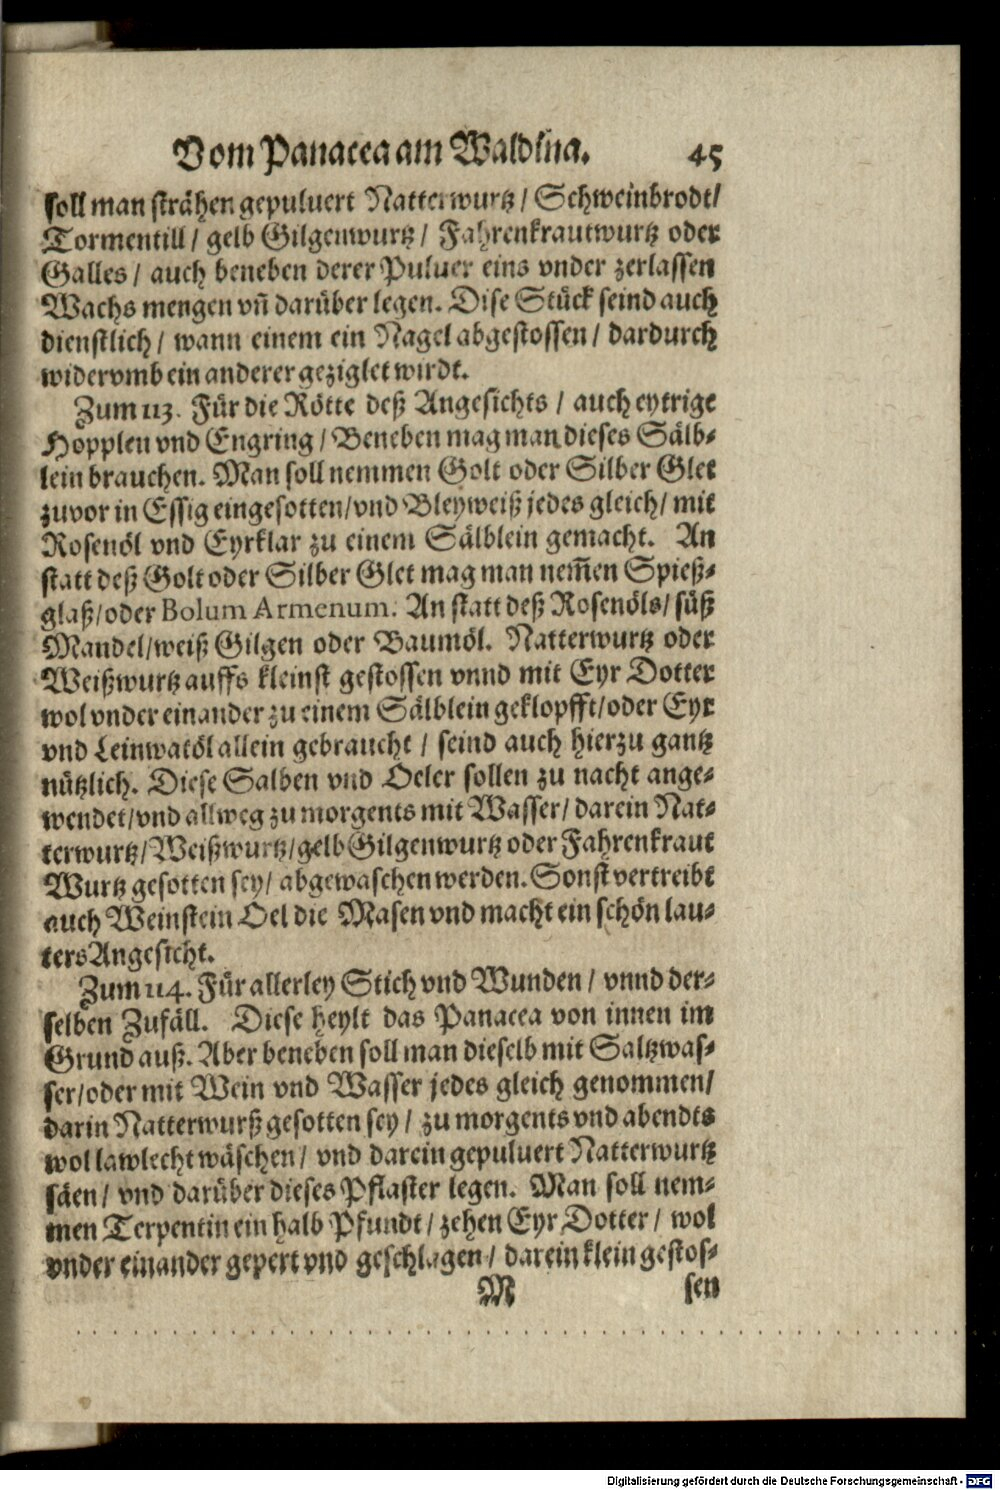 Vom Panacea am Waldsina. 45
soll man strähen gepuluert Natterwurtz / Schweinbrodt/
Tormentill / gelb Gilgenwurtz / Fahrenkrautwurtz oder
Galles / auch beneben derer Puluer eins vnder zerlassen
Wachs mengen vn̄ darüber legen. Dise Stück seind auch
dienstlich / wann einem ein Nagel abgestossen / dardurch
widervmb ein anderer geziglet wirdt.
Zum 113. Für die Rötte deß Angesichts / auch eytrige
Hopplen vnd Engring / Beneben mag man dieses Sälb-
lein brauchen. Man soll nemmen Golt oder Silber Glet
zuvor in Essig eingesotten/vnd Bleyweiß jedes gleich/ mit
Rosenöl vnd Eyrklar zu einem Sälblein gemacht. An
statt deß Golt oder Silber Glet mag man nem̄en Spieß-
glaß/oder Bolum Armenum. An statt deß Rosenöls/ süß
Mandel/weiß Gilgen oder Baumöl. Natterwurtz oder
Weißwurtz auffs kleinst gestossen vnnd mit Eyr Dotter
wol vnder einander zu einem Sälblein geklopfft/oder Eyr
vnd Leinwatöl allein gebraucht / seind auch hierzu gantz
nützlich. Diese Salben vnd Oeler sollen zu nacht ange-
wendet/vnd allweg zu morgents mit Wasser/ darein Nat-
terwurtz/Weißwurtz/gelb Gilgenwurtz oder Fahrenkraut
Wurtz gesotten sey/ abgewaschen werden. Sonst vertreibt
auch Weinstein Oel die Masen vnd macht ein schön lau-
ters Angesicht.
Zum 114. Für allerley Stich vnd Wunden / vnnd der-
selben Zufäll. Diese heylt das Panacea von innen im
Grund auß. Aber beneben soll man dieselb mit Saltzwas-
ser/oder mit Wein vnd Wasser jedes gleich genommen/
darin Natterwurß gesotten sey / zu morgents vnd abendts
wol lawlecht wäschen/ vnd darein gepuluert Natterwurtz
säen/ vnd darüber dieses Pflaster legen. Man soll nem-
men Terpentin ein halb Pfundt/ zehen Eyr Dotter/ wol
vnder einander gepert vnd geschlagen/ darein klein gestos-
M sen
Digitalisierung gefördert durch die Deutsche Forschungsgemeinschaft - DFG